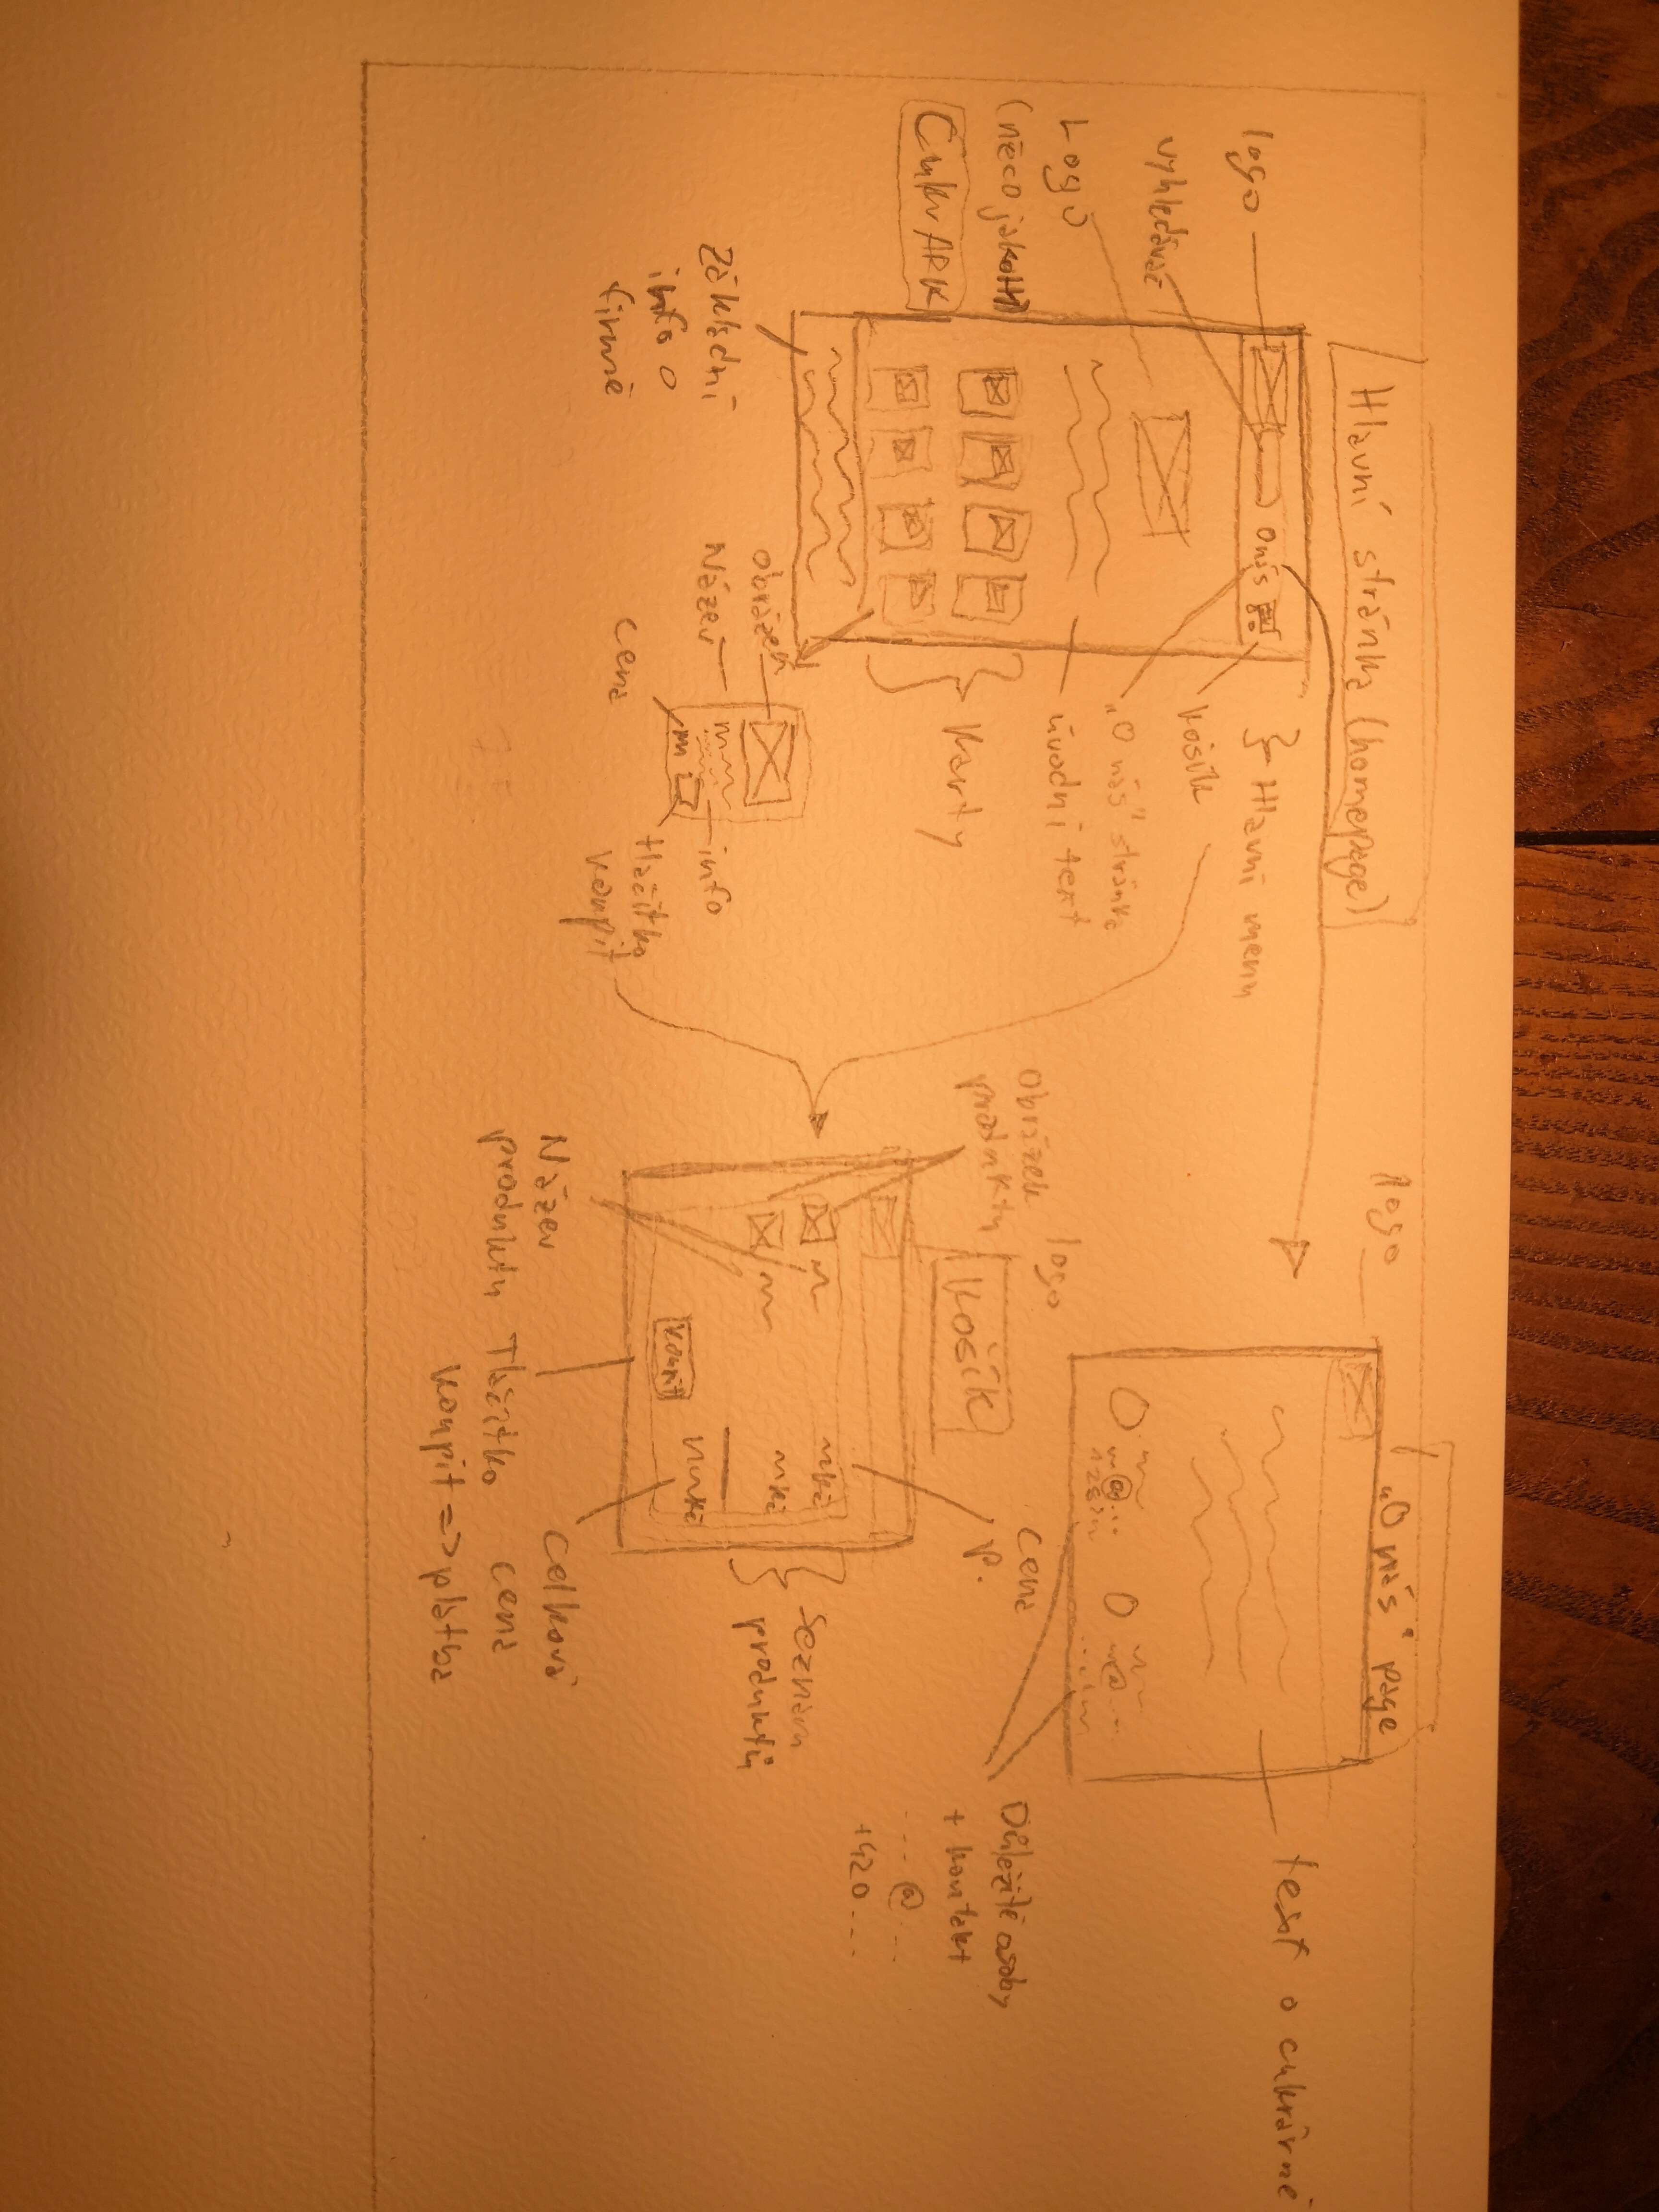 Hlavní stránka (homepage)
logo
vyhledávač
Logo
(něco jako H1)
CukrARK
Onás
} Hlavní menu
košík
„O nás" stránka
úvodní text
} karty
Základní
info o
firmě
obrázek
Název
Cena
info
tlačítko
koupit
„O nás" page
logo
text o cukrárně
Důležité osoby
+ kontakt
...@...
+420...
Košík
obrázek
produktu
logo
Cena
p.
Kč
Kč
Kč
koupit
} Seznam
produktů
Název
produktu
Tlačítko
koupit => platba
Celková
cena